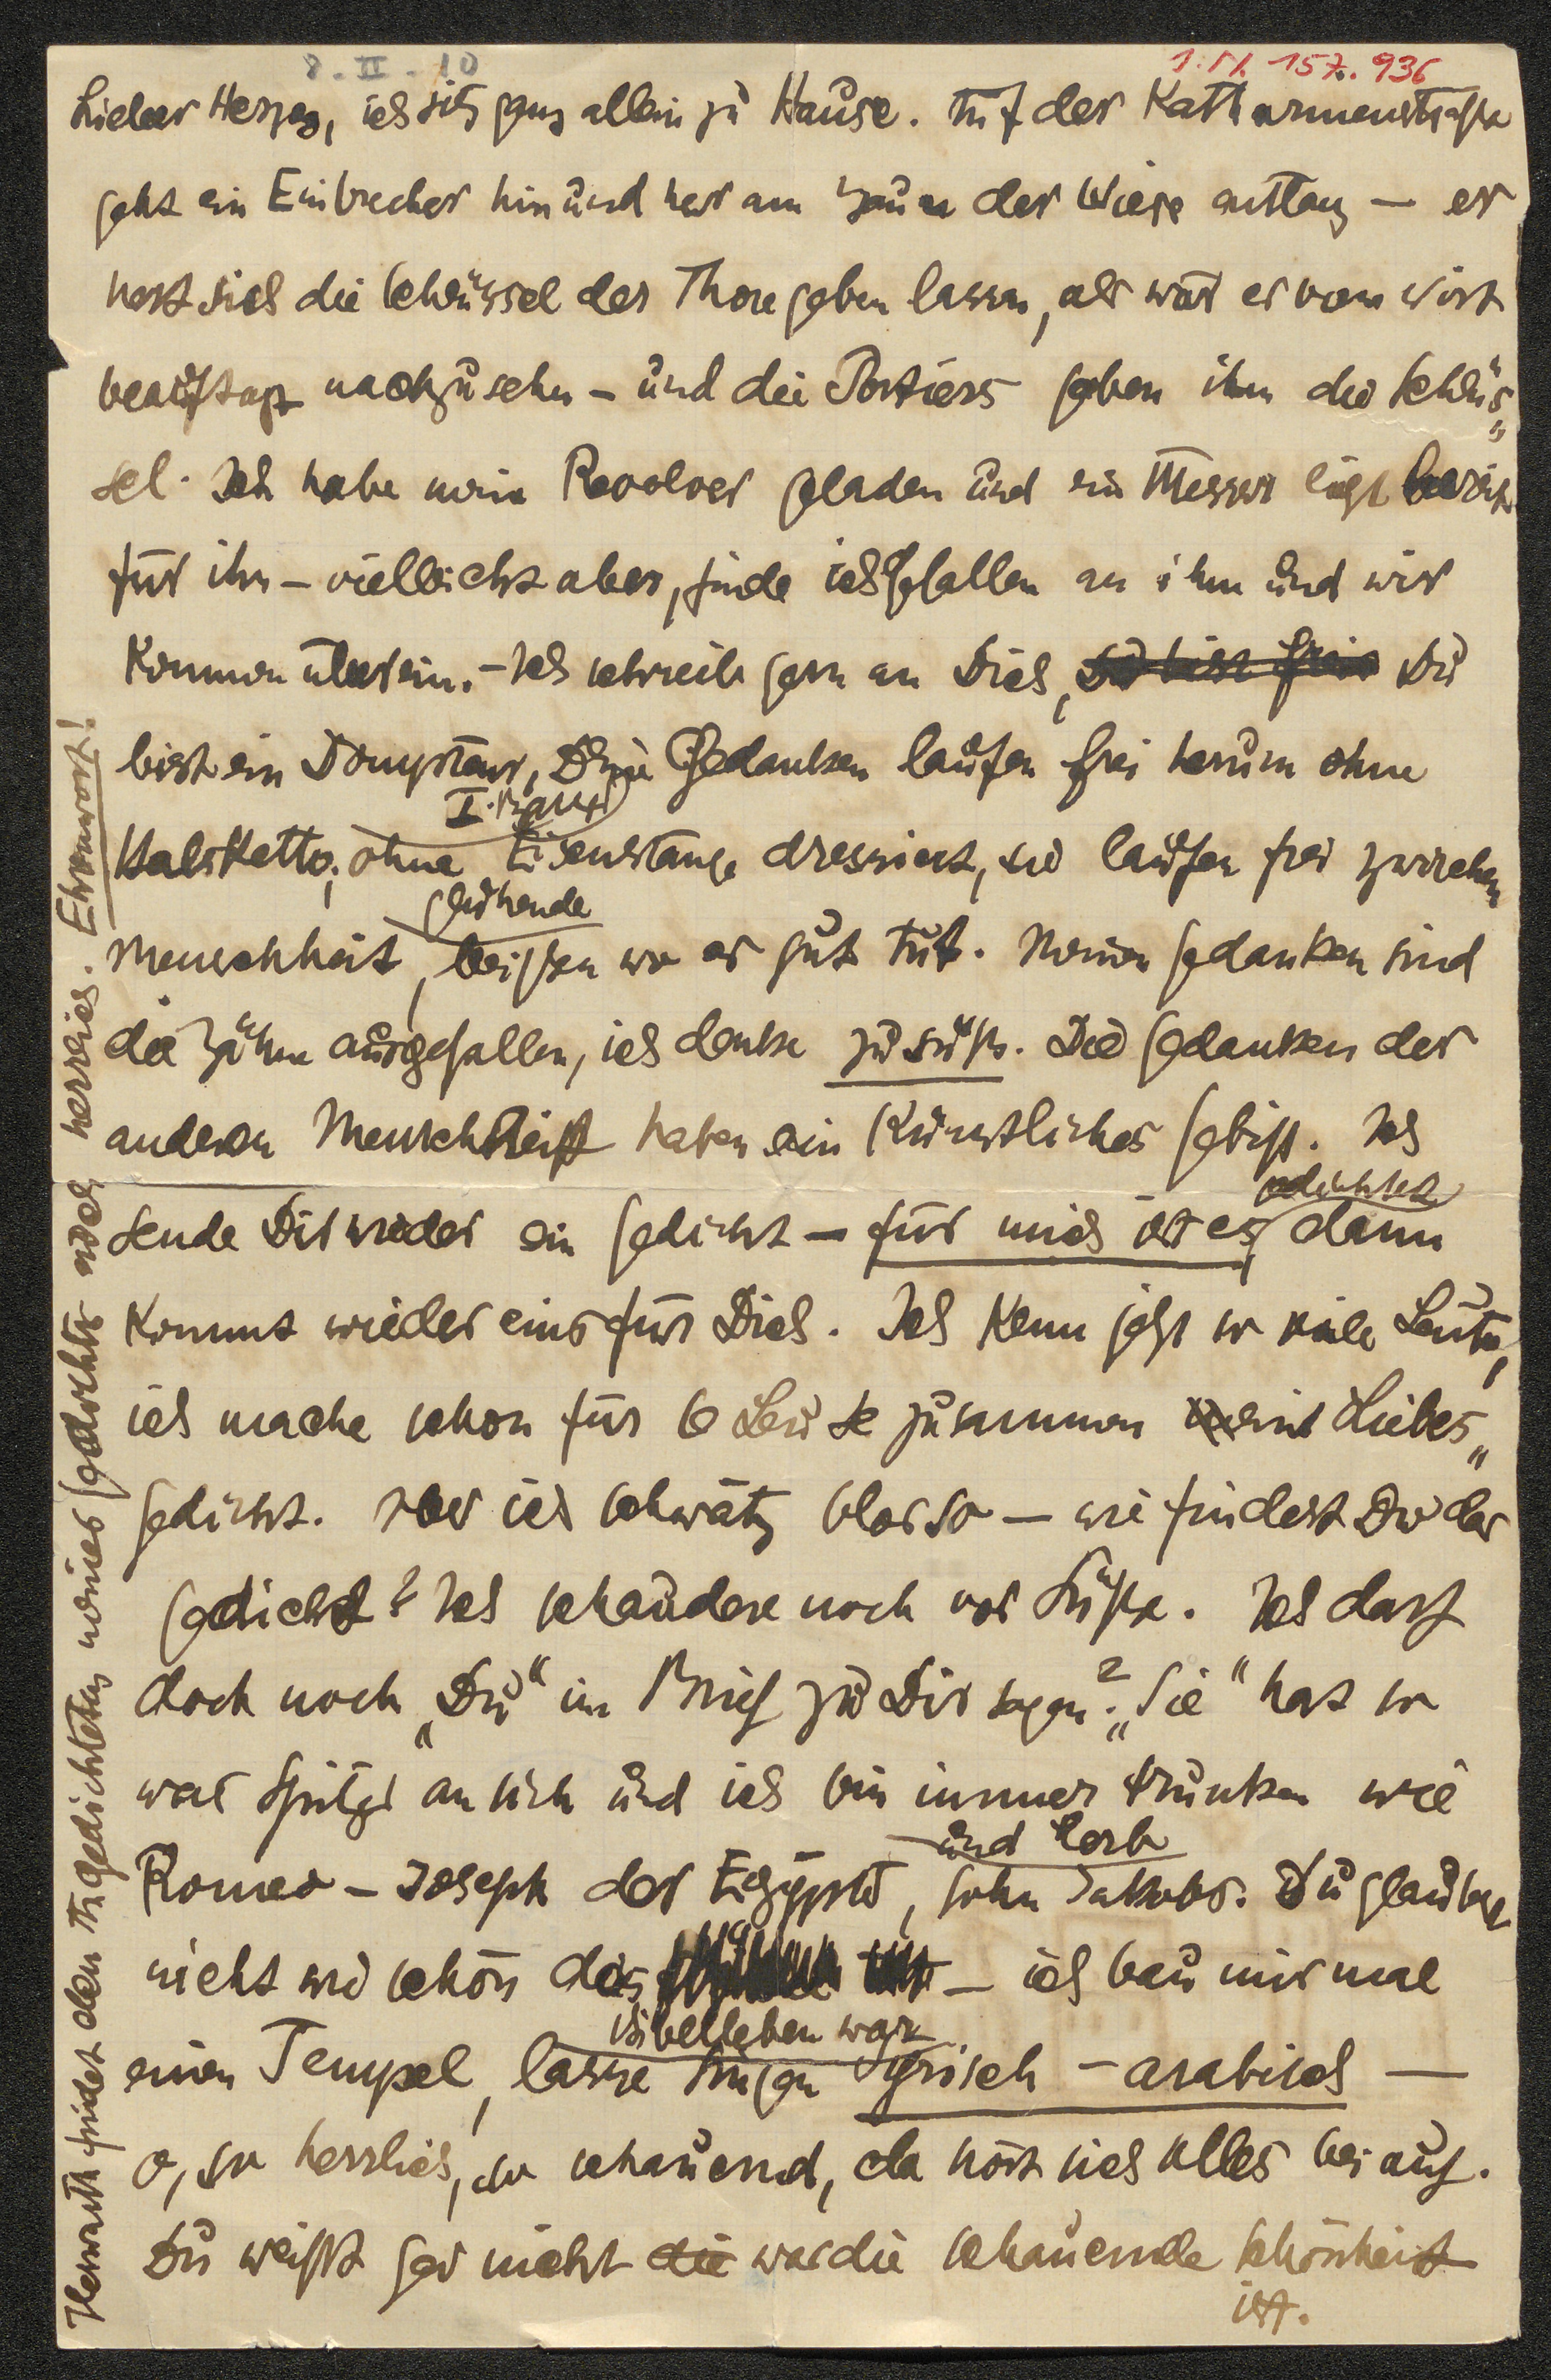 8.II.10
1.N. 157.936
Lieber Herzog, ich sitz ganz allein zu Hause. Auf der Katharinenstraße
geht ein Einbrecher hin und her am Zaun der Wiese entlang — er
hat sich die Schlüssel der Thore geben lassen, als wär er vom Wirt
beauftagt nachzusehn – und die Portiers geben ihm die Schlüs„
sel. Ich habe mein Revolver geladen und ein Messer liegt bereit
für ihn – vielleicht aber, finde ich Gefallen an ihm und wir
kommen überein. – Ich schreib gern an Dich, Du bist frei Du
bist ein Dompteur, Deine Gedanken laufen frei herum ohne
I. Rang
Halskette, ohne Eisenstange dressiert, sie laufen frei zwischen
glühende
Menschheit, beißen wo es gut tut. Meinen Gedanken sind
die Zähne ausgefallen, ich denke zu süß. Die Gedanken der
anderen Menschheit haben ein künstliches Gebiß. Ich
gedichtet
sende Dir wieder ein Gedicht – für mich ist es, dann
kommt wieder eins für Dich. Ich kenn jetzt so viele Leute,
ich mache schon für 6 Leute zusammen ein Liebes„
gedicht. Aber ich schwätz blos so — wie findest Du das
Gedicht? Ich schaudere noch vor Süße. Ich darf
doch noch „Du“ im Brief zu Dir sagen? „Sie“ hat so
was Spitzes an sich und ich bin immer trunken wie
und herb
Romeo – Joseph der Egypter, Sohn Jakobs. Du glaubst
nicht wie schön das – ich bau mir mal
Bibelleben war
einen Tempel, lasse singen syrisch – arabisch —
o, so herrlich, so schauernd, da hört sich alles bei auf.
Du weißt gar nicht die was die schauernde Schönheit
ist.
Herwarth findet den Angedichteten meines Gedichts auch herrlich. Ehrenwort!